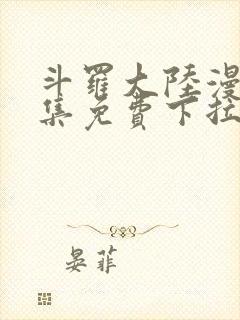 斗羅大陸漫
集免費下拉
晏菲